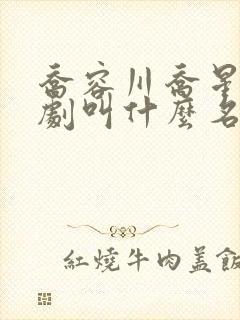 喬容川喬星
劇叫什麼名
紅燒牛肉蓋飯